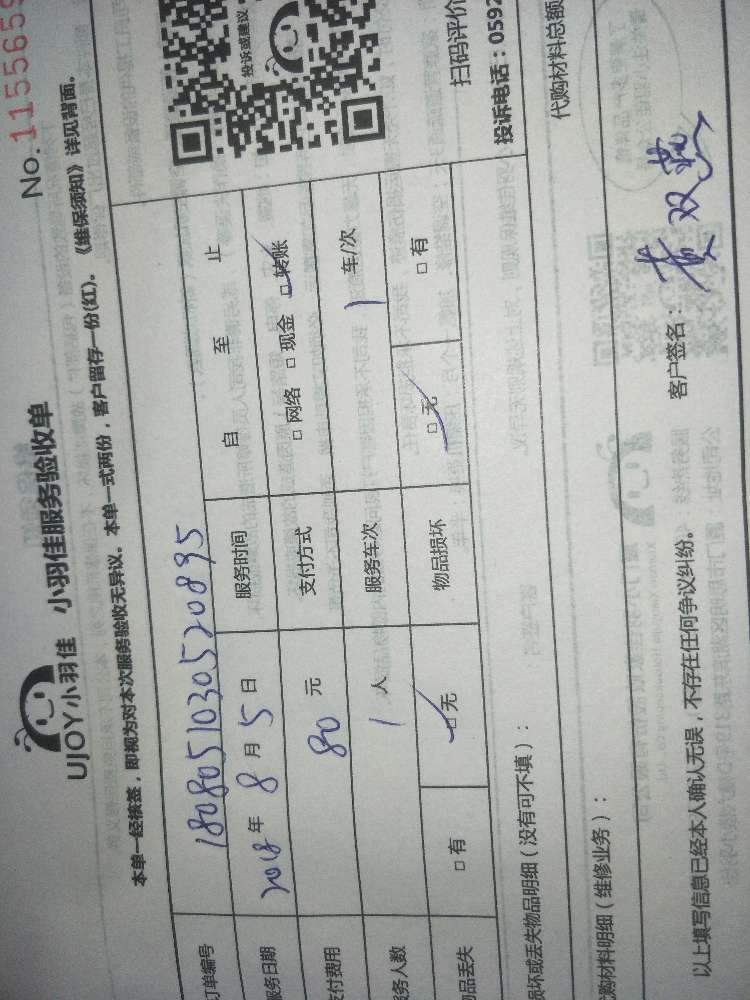 No. 1155659
UJOY小羽佳 小羽佳服务验收单
本单一经核签，即视为对本次服务验收无异议。本单一式两份，客户留存一份(红)。《维保须知》详见背面。
订单编号 1808051030520895
服务日期 2018 年 8 月 5 日 服务时间 自 至 止
支付费用 80 元 支付方式 □ 网络 □ 现金 □ 转账
服务人数 1 人 服务车次 1 车/次
物品丢失 □ 有 □ 无 物品损坏 □ 无 □ 有
投诉或建议
扫码评价
投诉电话：0592
损坏或丢失物品明细（没有可不填）：
代购材料明细（维修业务）： 代购材料总额
以上填写信息已经本人确认无误，不存在任何争议纠纷。 客户签名：